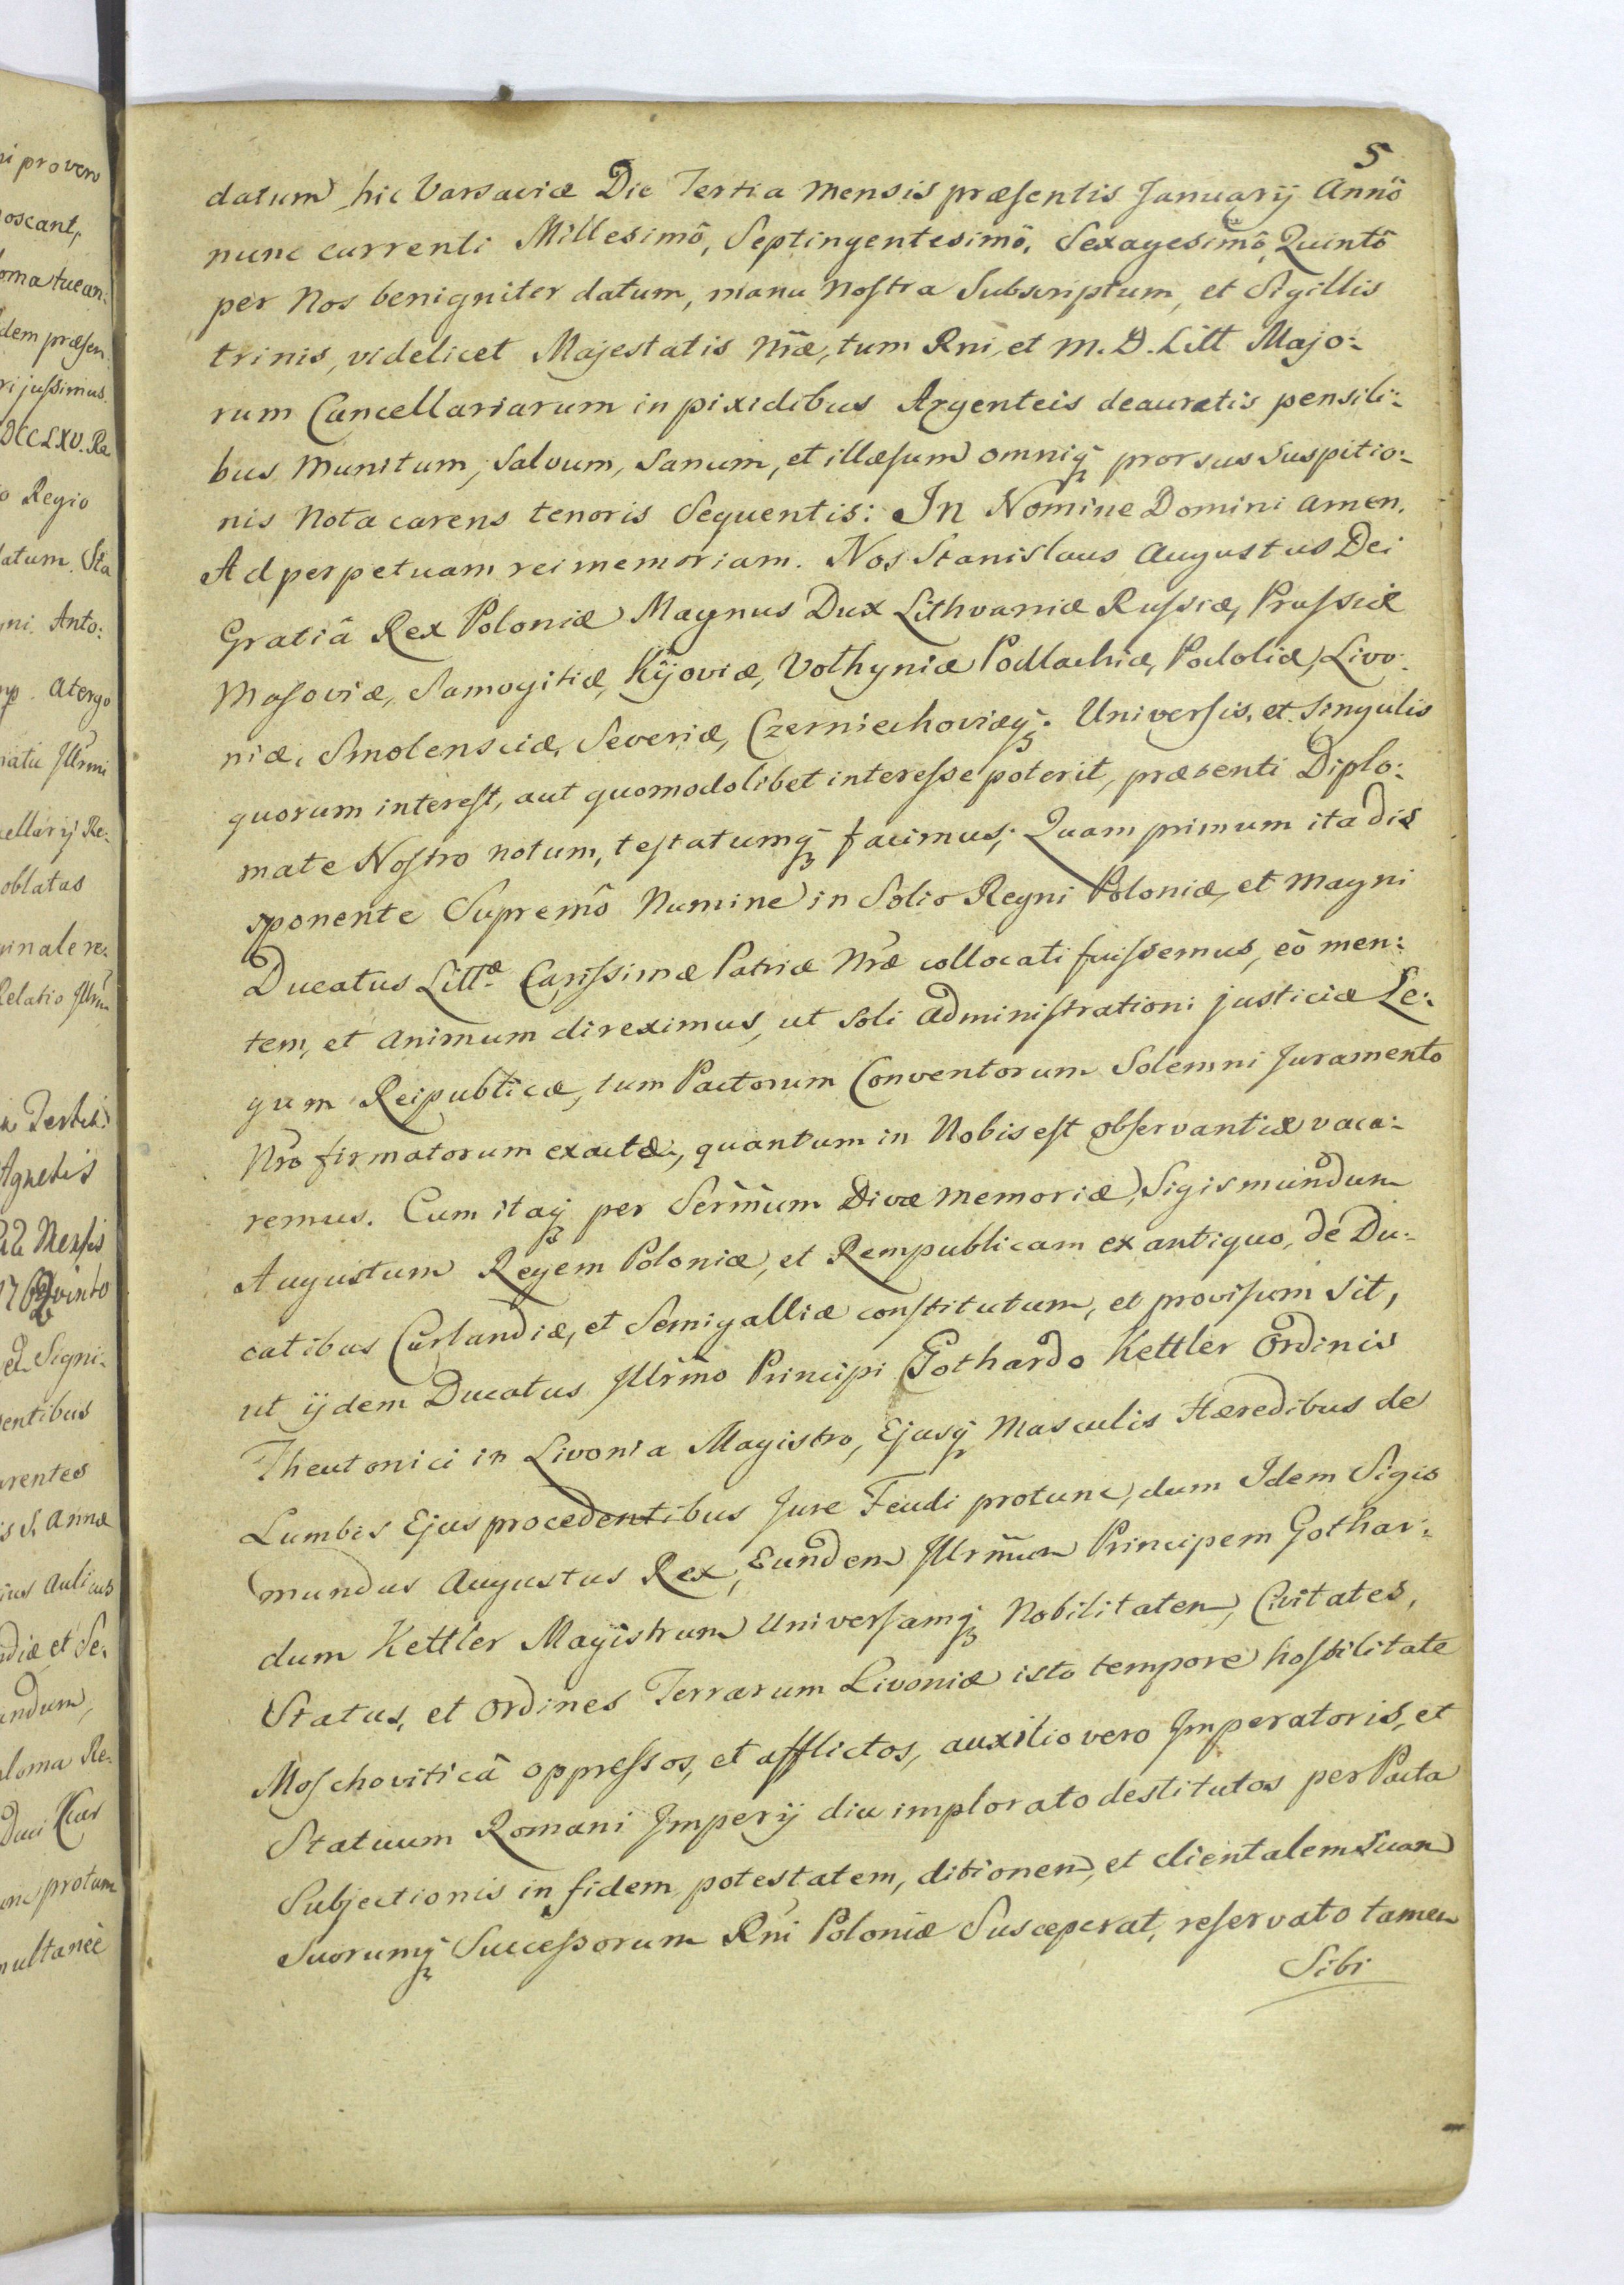 5
datum hic Varsaviæ Die Tertia mensis præsentis Januarij Annô
nunc currenti Millesimô, Septingentesimô, Sexagesimô, Quintô
per Nos benigniter datum, manu Nostra Subscriptum, et Sigillis
trinis, videlicet Majestatis Nræ, tum Rni, et M. D. Litt Majo:
rum Cancellariarum in pixidibus Argenteis deauratis pensili:
bus Munitum, Salvum, Sanum, et illæsum omniq; prorsus Suspitio:
nis Nota carens tenoris Sequentis: In Nomine Domini Amen.
Ad perpetuam rei memoriam. Nos Stanislaus Augustus Dei
Gratiâ Rex Poloniæ Magnus Dux Lithvaniæ Russiæ, Prussiæ
Masoviæ, Samogitiæ, Kijoviæ, Volhyniæ Podlachiæ, Podoliæ, Livo:
niæ, Smolensciæ, Severiæ, Czerniechoviæq;. Universis, et Singulis
quorum interest, aut quomodolibet interesse poterit, præsenti Diplo:
mate Nostro notum, testatumq; facimus; Quam primum ita dis
sponente Supremô Numine in Solio Regni Poloniæ, et Magni
Ducatus Littæ Carissimæ Patriæ Nræ collocati fuissemus, eô men:
tem, et Animum direximus, ut Soli Administrationi justiciæ Le:
gum Reipublicæ, tum Pactorum Conventorum Solemni Juramento
Nro firmatorum exactæ, quantum in Nobis est observantiæ vaca:
remus. Cum itaq; per Sermum Divæ memoriæ, Sigismundum
Augustum Regem Poloniæ, et Rempublicam ex antiquo, de Du:
catibus Curlandiæ, et Semigalliæ constitutum, et provisum sit,
ut ijdem Ducatus Illrmo Principi Gothardo Kettler Ordinis
Theutonici in Livonia Magistro, Ejusq; Masculis Hæredibus de
Lumbis Ejus procedentibus Jure Feudi protunc, dum Idem Sigis
mundus Augustus Rex, Eundem Illrmum Principem Gothar:
dum Kettler Magistrum Universamq; Nobilitatem, Civitates,
Status, et Ordines Terrarum Livoniæ isto tempore hostilitate
Moschoviticâ oppressos, et afflictos, auxilio vero Imperatoris, et
Statuum Romani Imperij diu implorato destitutos per Pacta
Subjectionis in fidem potestatem, ditionem, et clientalem Suam
Suorumq; Successorum Rni Poloniæ Susceperat, reservato tamen
Sibi